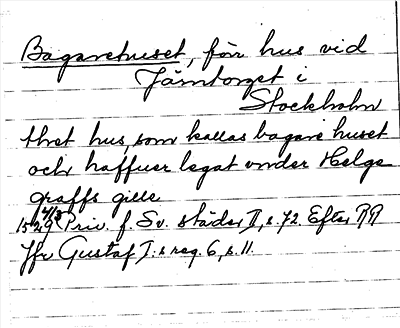 Bagarehuset, för hus vid
Järntorget i
Stockholm
thet hus, som kallas bagare huset
och haffuer legat vnder Helge
graffs gille
1529 4/5 Priv. f. Sv. städer II, s. 72. Efter RR
Jfr Gustaf I:s reg. 6, s. 11.